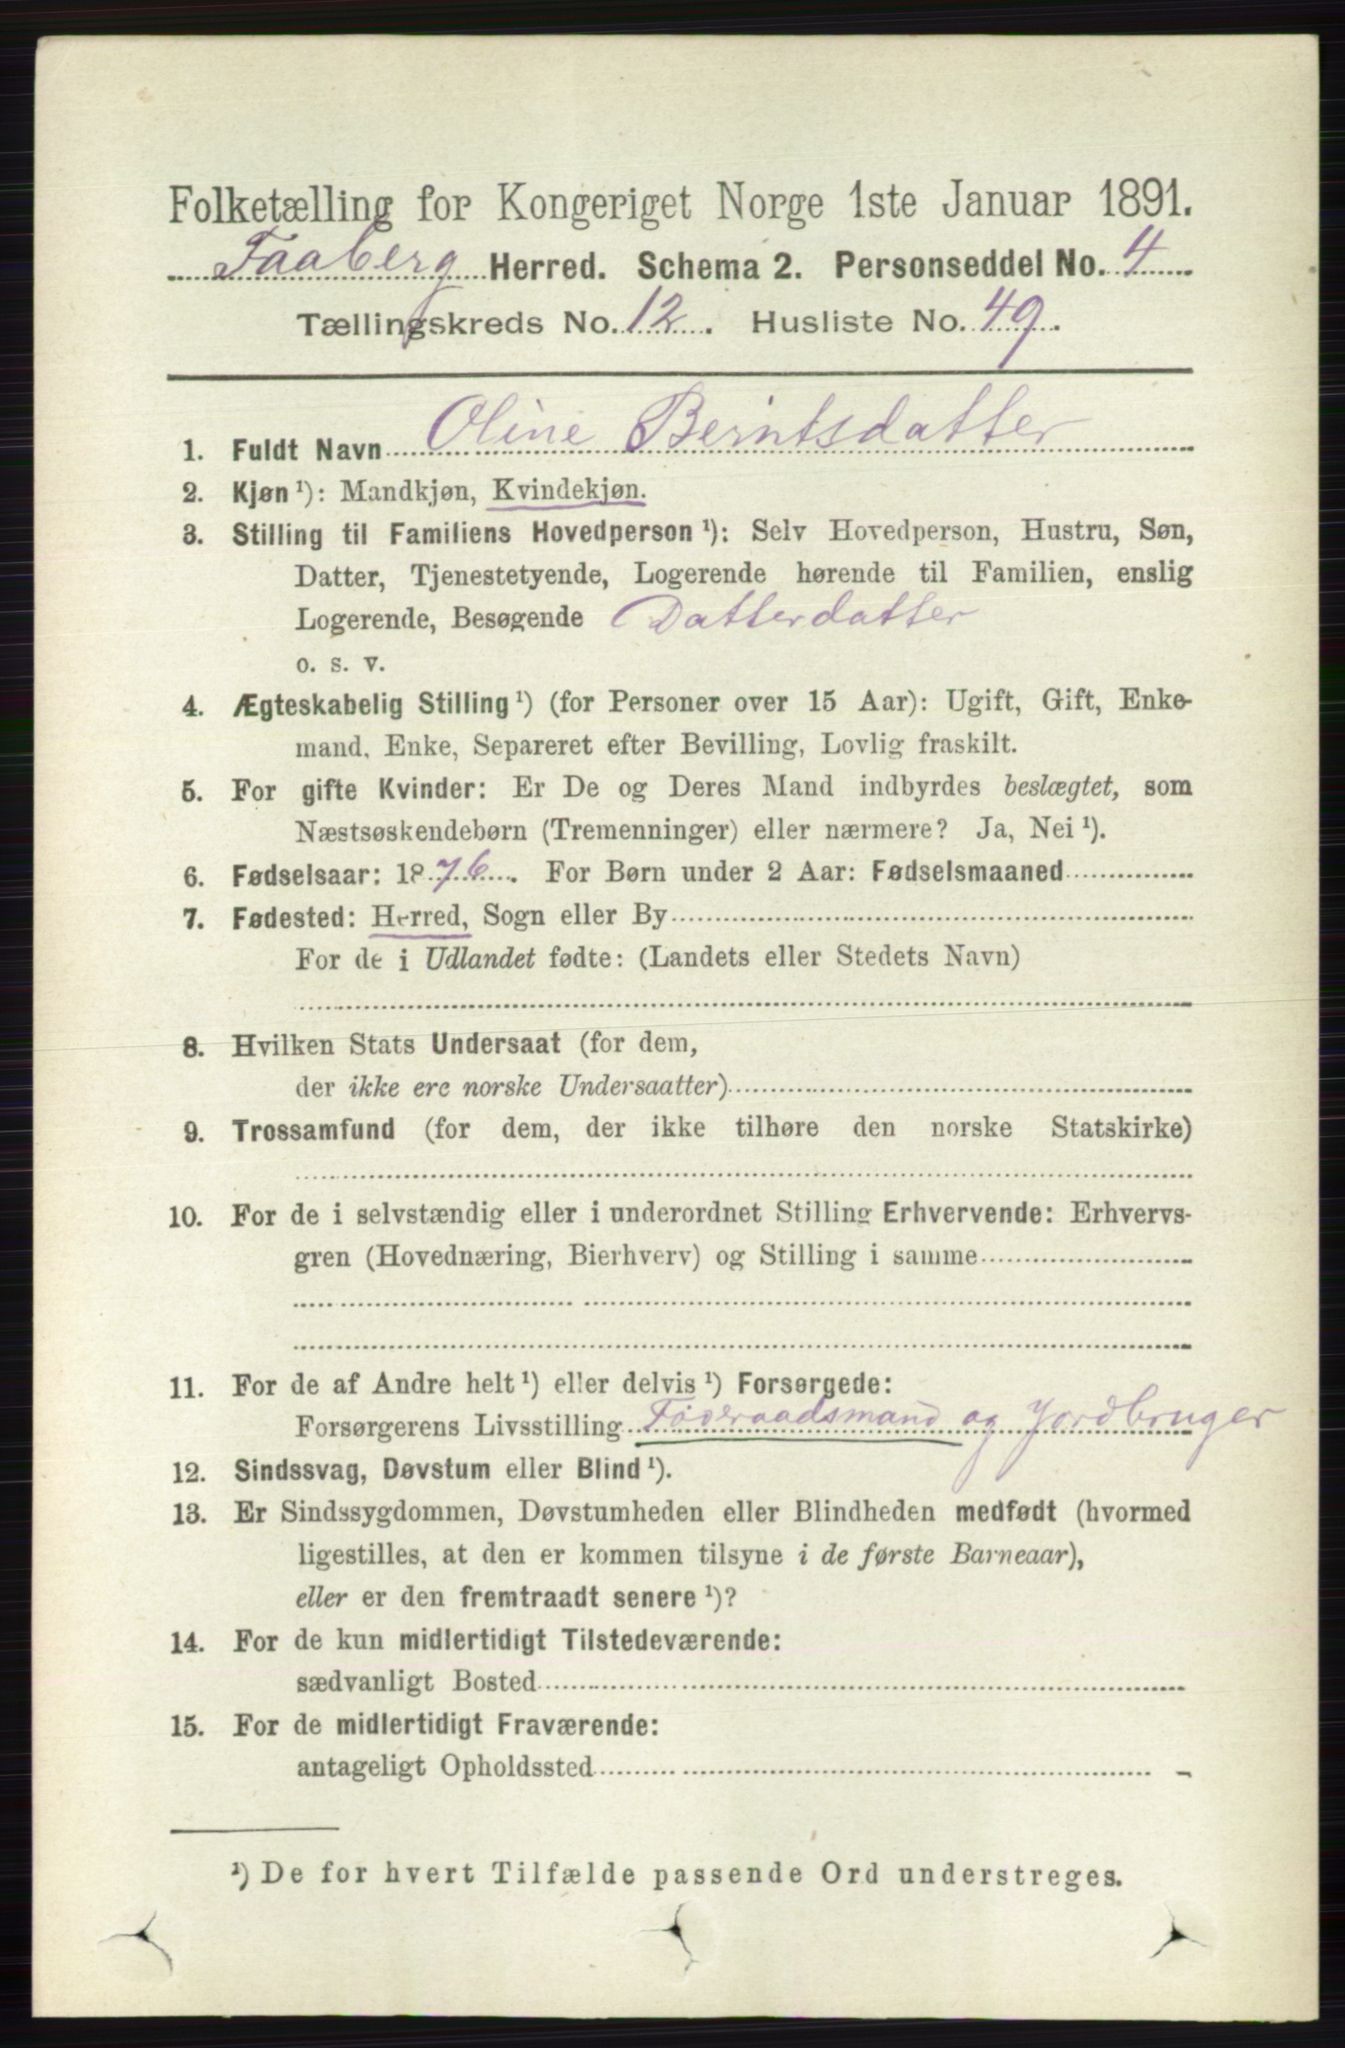 Folketælling for Kongeriget Norge 1ste Januar 1891.
Faaberg Herred. Schema 2. Personseddel No. 4
Tællingskreds No. 12. Husliste No. 49.
1. Fuldt Navn Oline Berntsdatter
2. Kjøn ¹): Mandkjøn, Kvindekjøn.
3. Stilling til Familiens Hovedperson ¹): Selv Hovedperson, Hustru, Søn,
Datter, Tjenestetyende, Logerende hørende til Familien, enslig
Logerende, Besøgende Datterdatter
o. s. v.
4. Ægteskabelig Stilling ¹) (for Personer over 15 Aar): Ugift, Gift, Enke-
mand, Enke, Separeret efter Bevilling, Lovlig fraskilt.
5. For gifte Kvinder: Er De og Deres Mand indbyrdes beslægtet, som
Næstsøskendebørn (Tremenninger) eller nærmere? Ja, Nei ¹).
6. Fødselsaar: 1876. For Børn under 2 Aar: Fødselsmaaned
7. Fødested: Herred, Sogn eller By
For de i Udlandet fødte: (Landets eller Stedets Navn)
8. Hvilken Stats Undersaat (for dem,
der ikke ere norske Undersaatter)
9. Trossamfund (for dem, der ikke tilhøre den norske Statskirke)
10. For de i selvstændig eller i underordnet Stilling Erhvervende: Erhvervs-
gren (Hovednæring, Bierhverv) og Stilling i samme
11. For de af Andre helt ¹) eller delvis ¹) Forsørgede:
Forsørgerens Livsstilling Føderaadsmand og Jordbruger
12. Sindssvag, Døvstum eller Blind ¹).
13. Er Sindssygdommen, Døvstumheden eller Blindheden medfødt (hvormed
ligestilles, at den er kommen tilsyne i de første Barneaar),
eller er den fremtraadt senere ¹)?
14. For de kun midlertidigt Tilstedeværende:
sædvanligt Bosted
15. For de midlertidigt Fraværende:
antageligt Opholdssted
¹) De for hvert Tilfælde passende Ord understreges.